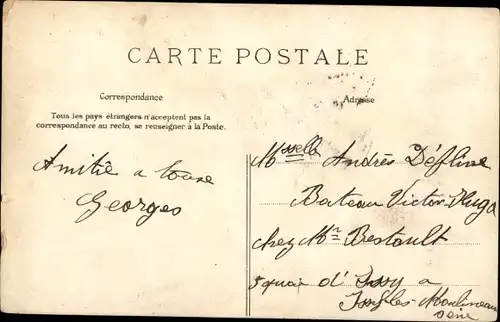 CARTE POSTALE
Correspondance
Adresse
Tous les pays étrangers n'acceptent pas la
correspondance au recto, se renseigner à la Poste.
Amitié a tous
Georges
Mselle Andrès Défline
Bateau Victor Hugo
chez Mr Bestault
5 quai d'Issy a
Issy les Moulineau
Seine